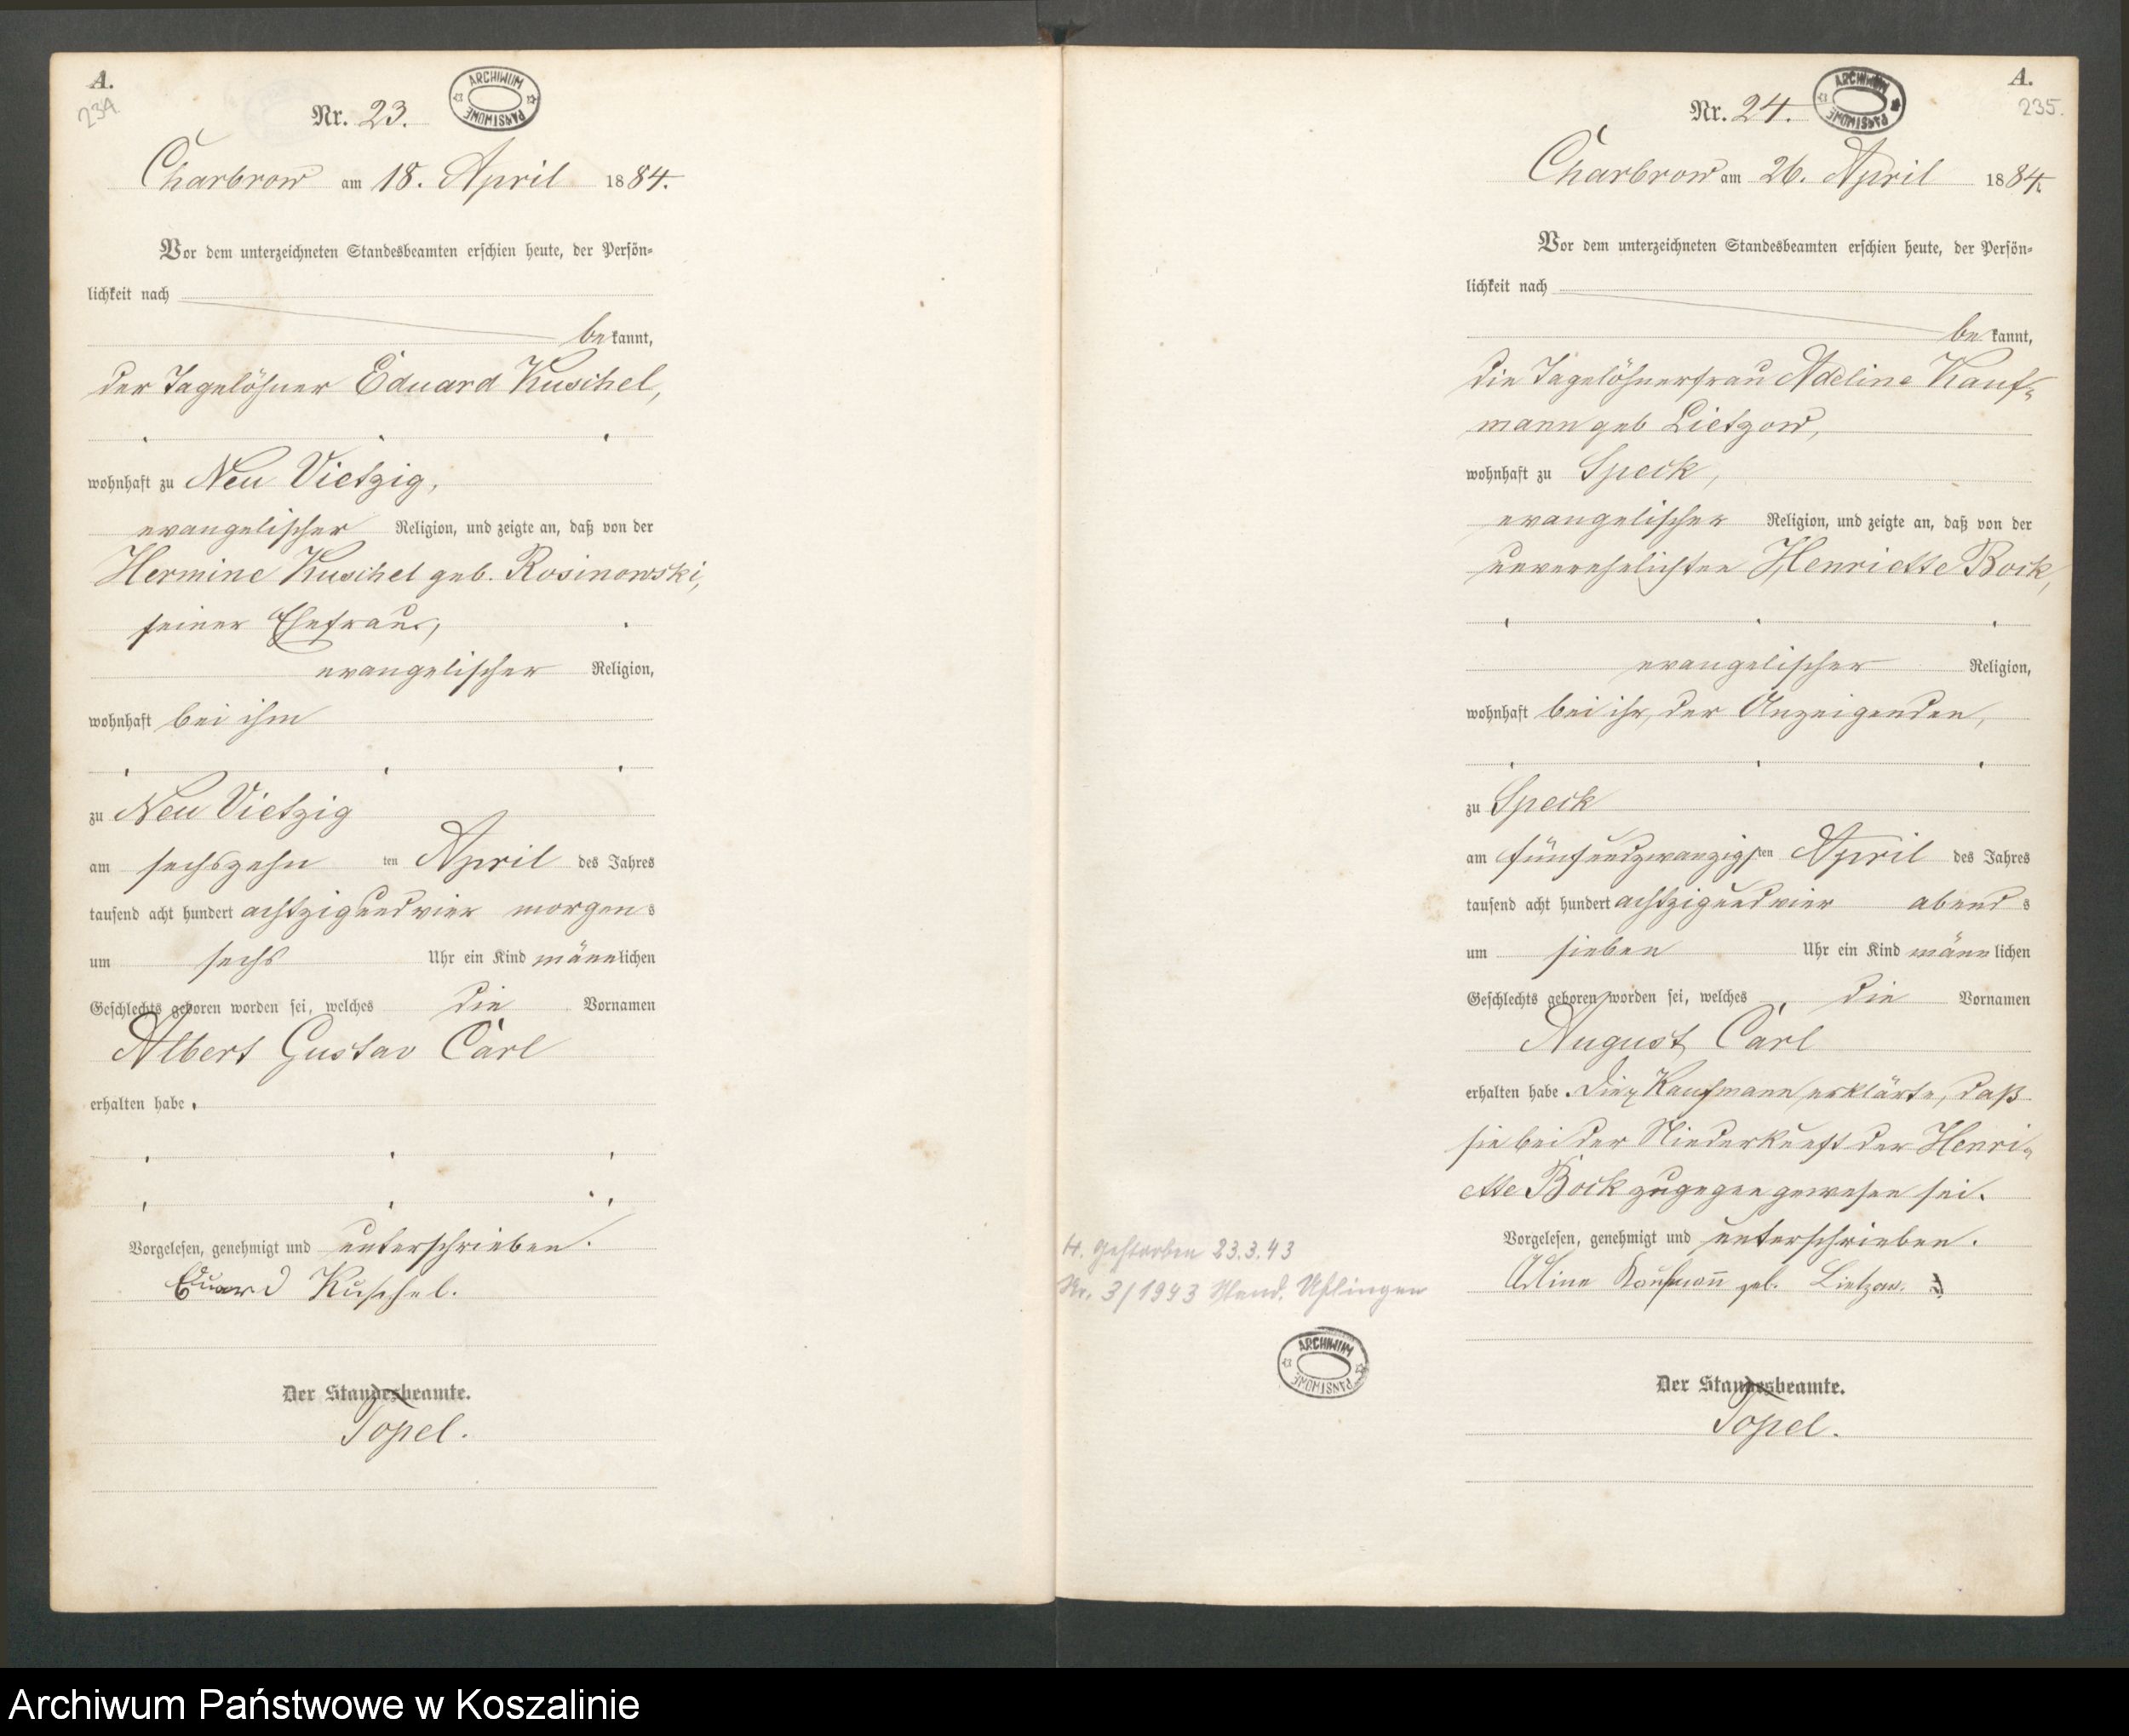 A.
234
Nr. 23.
ARCHIWUM PAŃSTWOWE
Charbrow am 18. April 1884.
Vor dem unterzeichneten Standesbeamten erschien heute, der Persön-
lichkeit nach
bekannt,
der Tagelöhner Eduard Kuschel,
wohnhaft zu Neu Vietzig,
evangelischer Religion, und zeigte an, daß von der
Hermine Kuschel geb. Rosinowski,
seiner Ehefrau,
evangelischer Religion,
wohnhaft bei ihm
zu Neu Vietzig
am sechszehn ten April des Jahres
tausend acht hundert achtzig und vier morgens
um sechs Uhr ein Kind männlichen
Geschlechts geboren worden sei, welches die Vornamen
Albert Gustav Carl
erhalten habe.
Vorgelesen, genehmigt und unterschrieben.
Eduard Kuschel.
Der Standesbeamte.
Topel.
A.
235.
Nr. 24.
ARCHIWUM PAŃSTWOWE
Charbrow am 26. April 1884.
Vor dem unterzeichneten Standesbeamten erschien heute, der Persön-
lichkeit nach
bekannt,
die Tagelöhnerfrau Adeline Kauf-
mann geb Lietzow,
wohnhaft zu Speck,
evangelischer Religion, und zeigte an, daß von der
unverehelichten Henriette Bock,
evangelischer Religion,
wohnhaft bei ihr, der Anzeigenden,
zu Speck
am fünfundzwanzigsten April des Jahres
tausend acht hundert achtzig und vier abends
um sieben Uhr ein Kind männlichen
Geschlechts geboren worden sei, welches die Vornamen
August Carl
erhalten habe. Die Kaufmann erklärte, daß
sie bei der Niederkunft der Henri-
ette Bock zugegen gewesen sei.
Vorgelesen, genehmigt und unterschrieben.
Adline Kaufmann geb. Lietzow.
Der Standesbeamte.
Topel.
gestorben 23.3.43
Nr. 3/1943 Stand. Uchlingen
ARCHIWUM PAŃSTWOWE
Archiwum Państwowe w Koszalinie